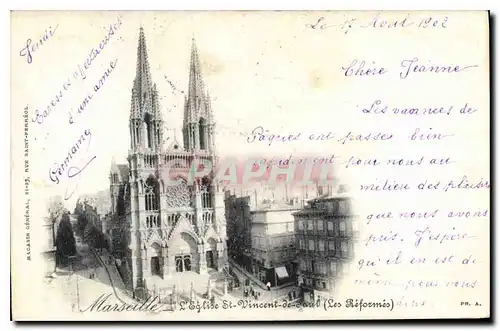 Le 17 Avril 1902
Jeudi
Chère Jeanne
Caresses et
affectueuses
d'un amie
Germaine
Les vacances de
Pâques ont passée bien
rapidement pour nous au
milieu des plaisirs
que nous avons
pris. J'espère
qu'il en est de
même pour vous
MAGASIN GÉNÉRAL, 21-23, RUE SAINT-FERRÉOL
CPARAMA
Marseille L'Église St-Vincent-de-Paul (Les Réformés)
PH. A.